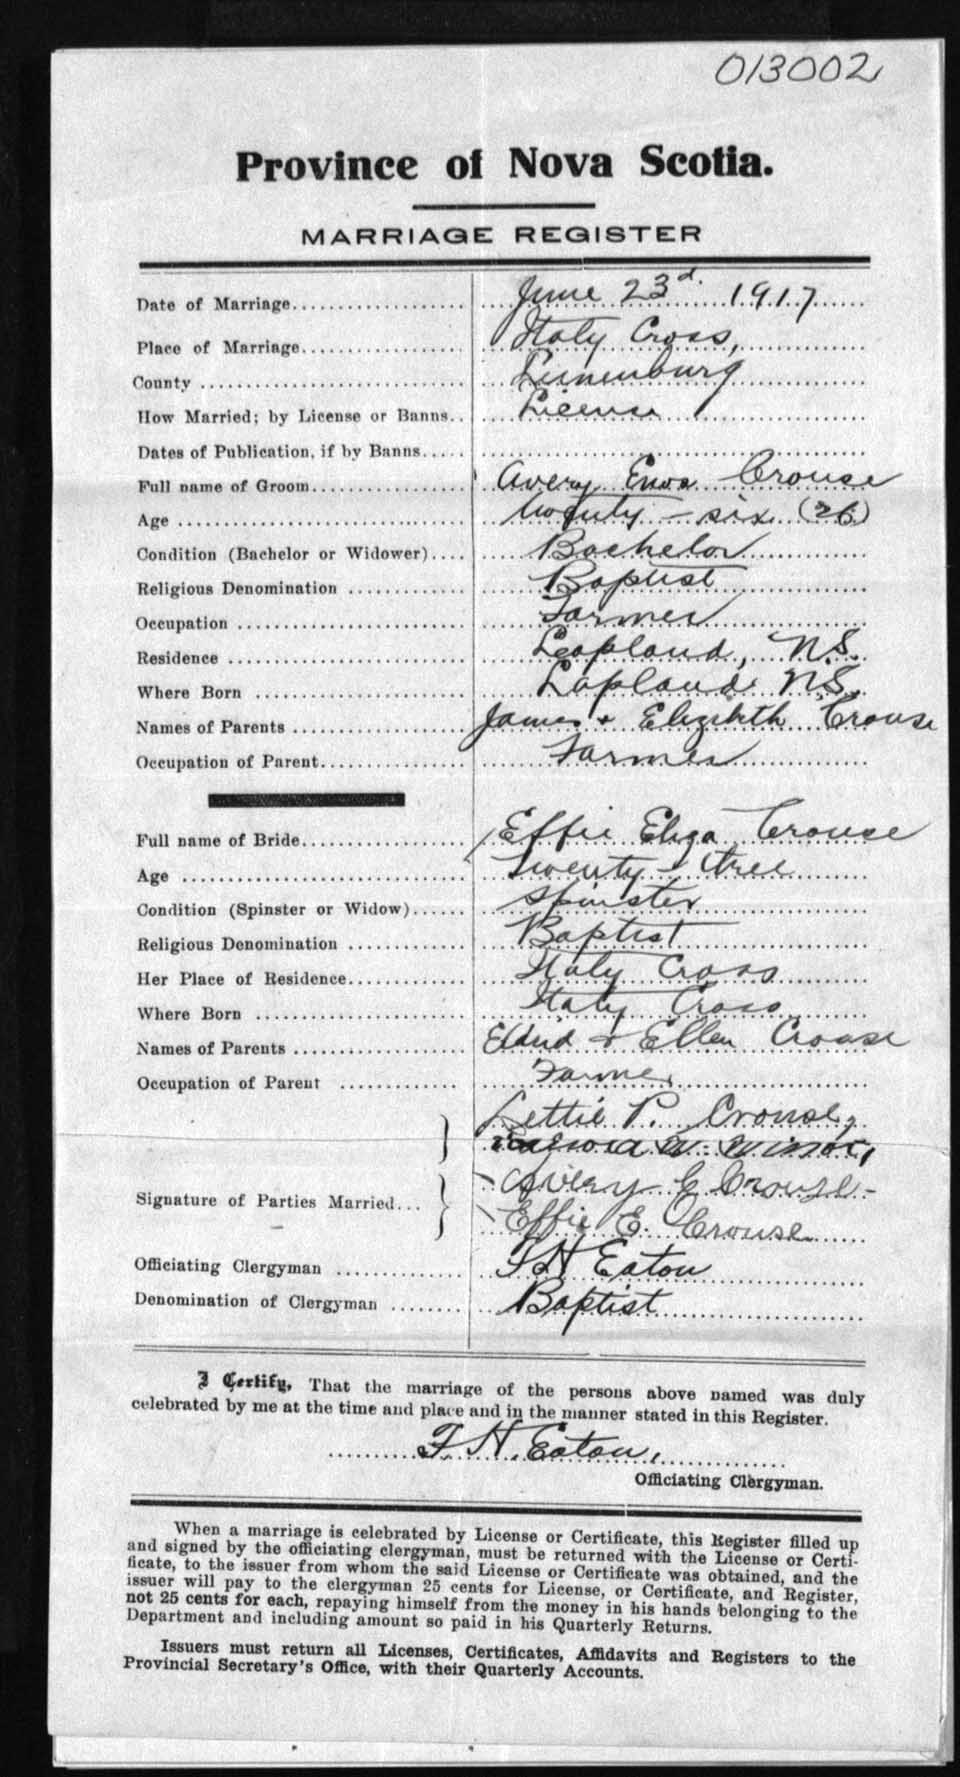 013002
Province of Nova Scotia.
MARRIAGE REGISTER
Date of Marriage.................... June 23d. 1917
Place of Marriage................... Italy Cross,
County ............................. Lunenburg
How Married; by License or Banns.. License
Dates of Publication, if by Banns.....
Full name of Groom.................. Avery Enos Crouse
Age ................................ twenty-six (26)
Condition (Bachelor or Widower).... Bachelor
Religious Denomination ............. Baptist
Occupation ......................... Farmer
Residence .......................... Lapland, N.S.
Where Born ......................... Lapland N.S.
Names of Parents ................... James + Elizabeth Crouse
Occupation of Parent................ Farmer
Full name of Bride.................. Effie Eliza Crouse
Age ................................ Twenty-tree
Condition (Spinster or Widow)...... Spinster
Religious Denomination ............. Baptist
Her Place of Residence.............. Italy Cross
Where Born ......................... Italy Cross
Names of Parents ................... & Ellen Crouse
Occupation of Parent ............... Farmer
Lettie P. Crouse,
Signature of Parties Married... Avery E Crouse
Effie E. Crouse
Officiating Clergyman .............. F H Eaton
Denomination of Clergyman ........ Baptist
I Certify, That the marriage of the persons above named was duly
celebrated by me at the time and place and in the manner stated in this Register.
F. H. Eaton,
Officiating Clergyman.
When a marriage is celebrated by License or Certificate, this Register filled up
and signed by the officiating clergyman, must be returned with the License or Certi-
ficate, to the issuer from whom the said License or Certificate was obtained, and the
issuer will pay to the clergyman 25 cents for License, or Certificate, and Register,
not 25 cents for each, repaying himself from the money in his hands belonging to the
Department and including amount so paid in his Quarterly Returns.
Issuers must return all Licenses, Certificates, Affidavits and Registers to the
Provincial Secretary's Office, with their Quarterly Accounts.